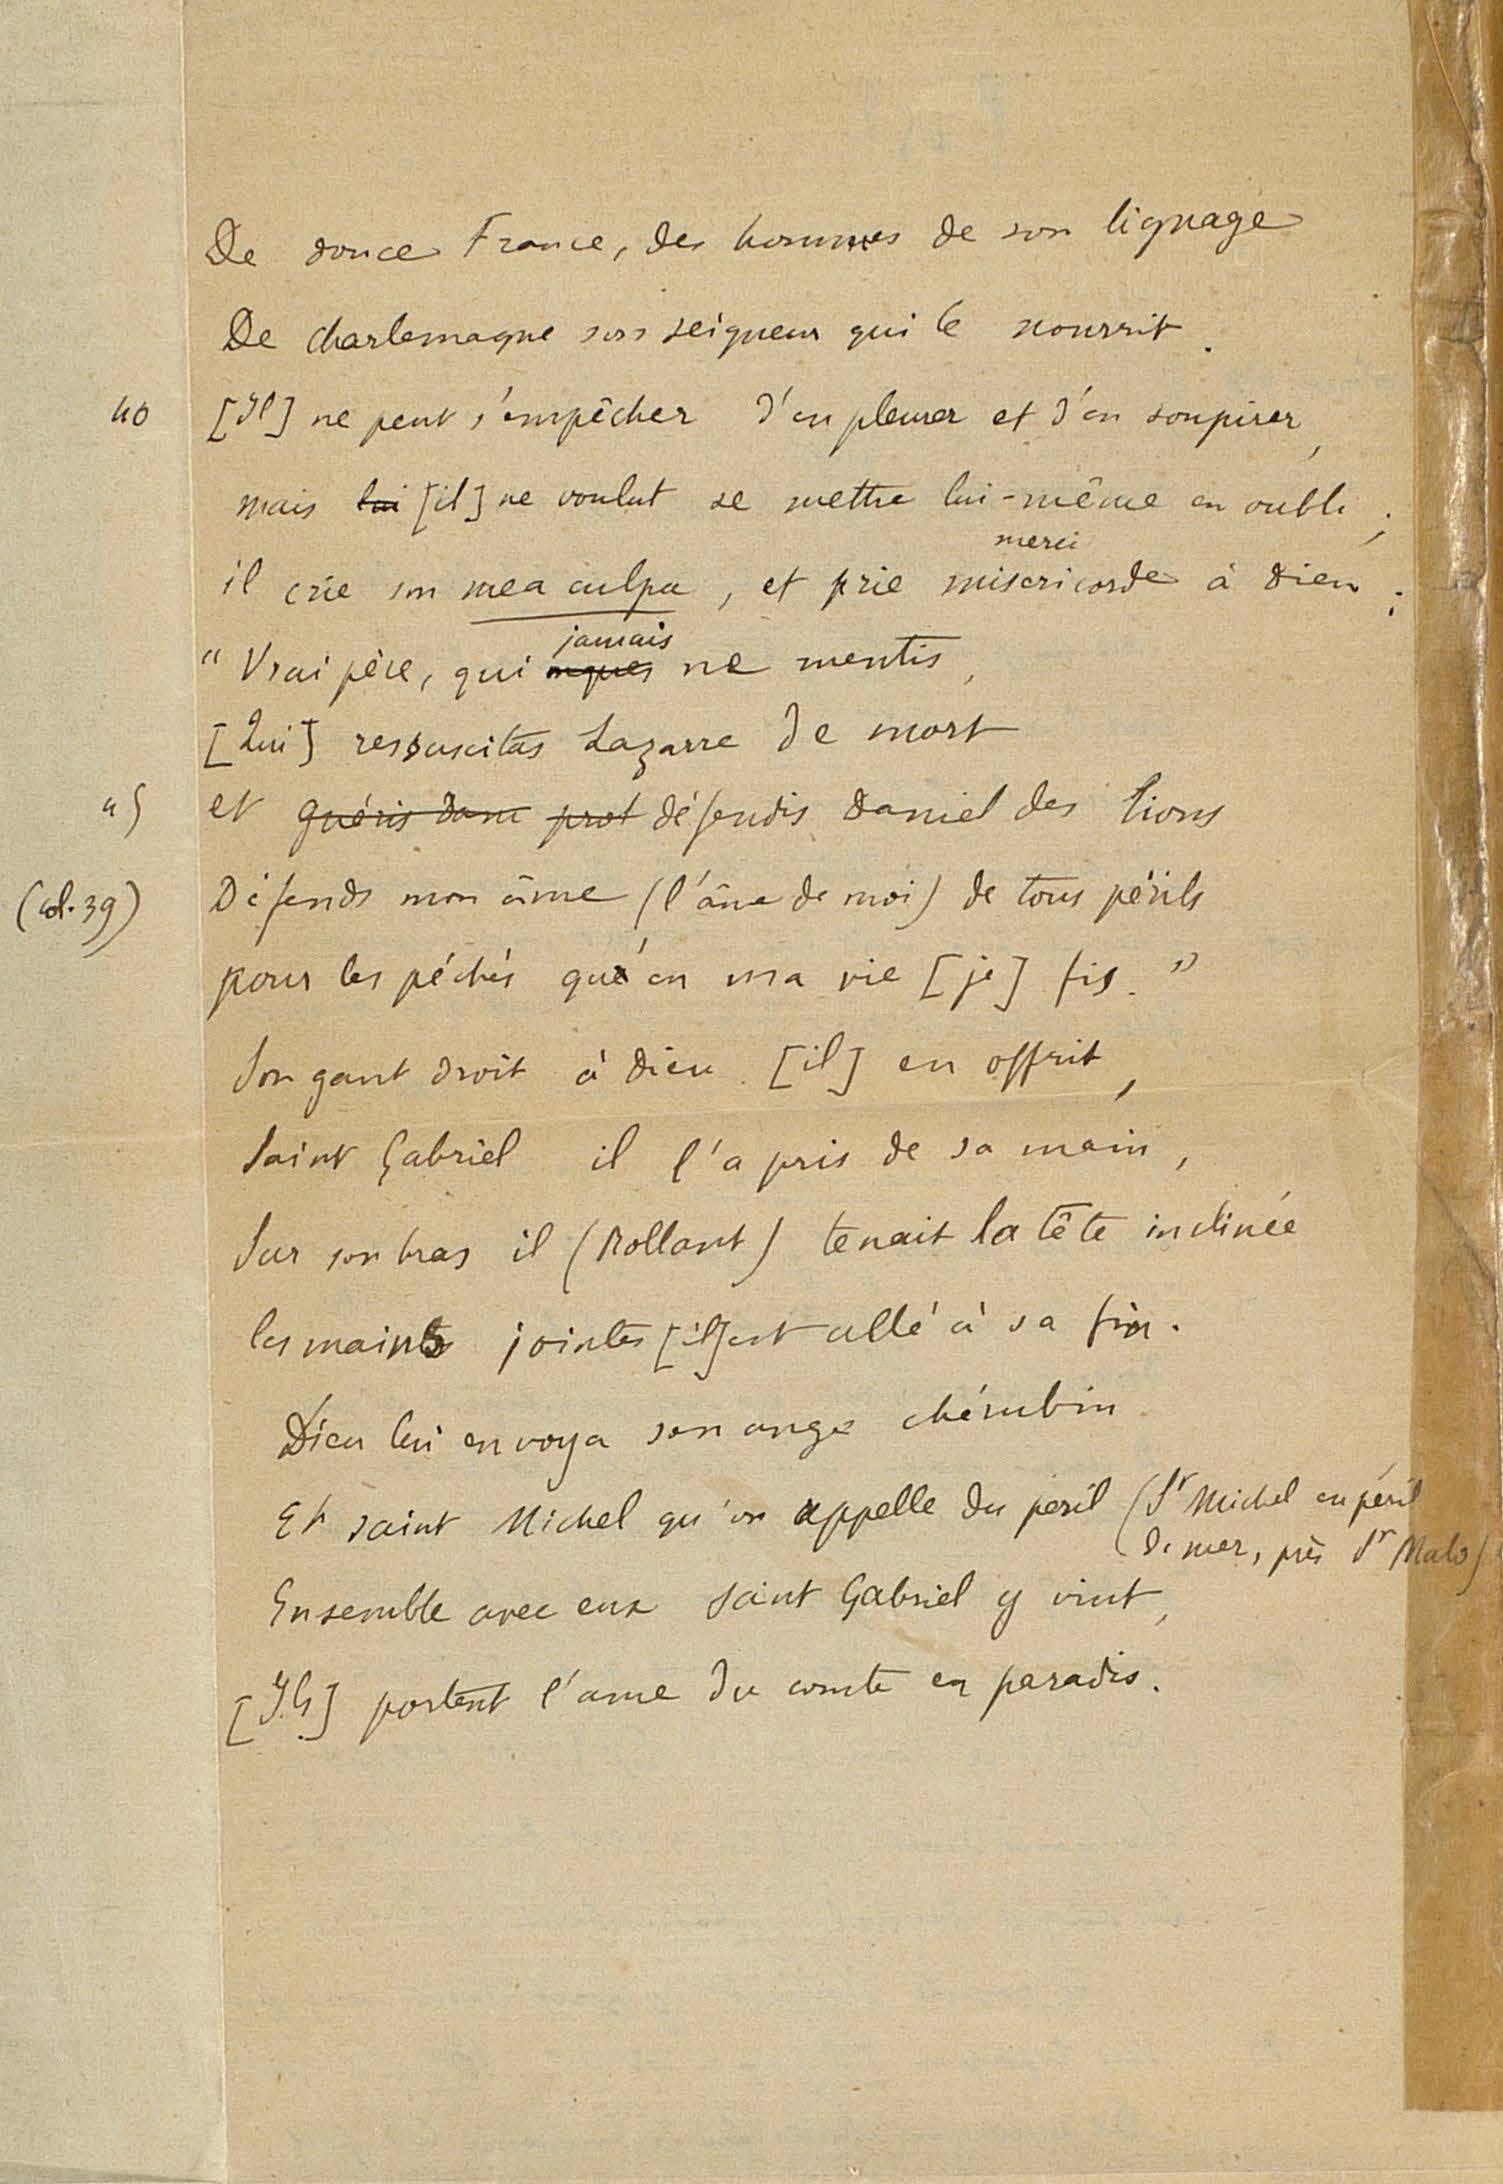 De douce France, des hommes de son lignage
De Charlemagne son seigneur qui le nourrit.
40 [Il] ne peut s'empêcher d'en pleurer et d'en soupirer,
mais lui [il] ne voulut se mettre lui-même en oubli ;
merci
il crie son mea culpa, et prie misericorde à Dieu ;
jamais
" Vrai père, qui onques ne mentis,
[Qui] ressuscitas Lazarre de mort
45 et guéris dam prot défendis Daniel des lions
(col. 39) Défends mon âme (l'âme de moi) de tous périls
pour les péchés qu'en ma vie [je] fis. "
Son gant droit à Dieu [il] en offrit,
Saint Gabriel il l'a pris de sa main,
Sur son bras il (Rollant) tenait la tête inclinée
les mains jointes [il] est allé à sa fin.
Dieu lui envoya son ange chérubin
Et saint Michel qu'on appelle du peril (St Michel en péril
de mer, près St Malo)
Ensemble avec eux Saint Gabriel y vint,
[Ils] portent l'ame du comte en paradis.